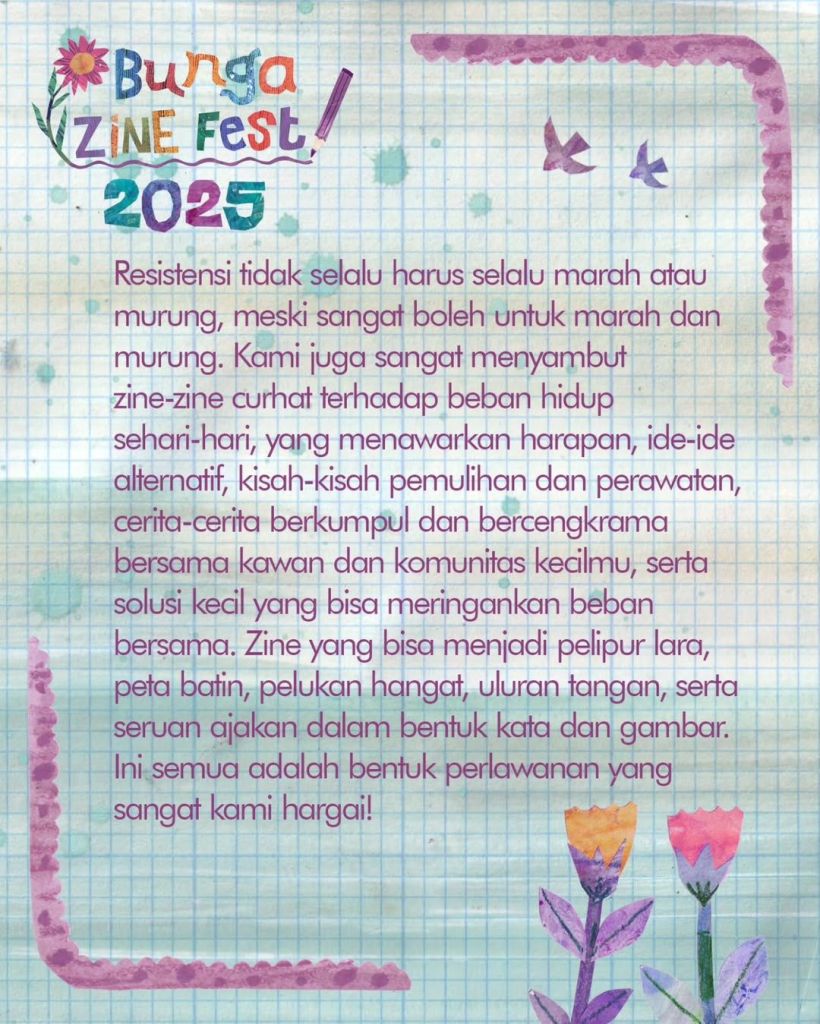 Bunga
ZINE FEST
2025
Resistensi tidak selalu harus selalu marah atau
murung, meski sangat boleh untuk marah dan
murung. Kami juga sangat menyambut
zine-zine curhat terhadap beban hidup
sehari-hari, yang menawarkan harapan, ide-ide
alternatif, kisah-kisah pemulihan dan perawatan,
cerita-cerita berkumpul dan bercengkrama
bersama kawan dan komunitas kecilmu, serta
solusi kecil yang bisa meringankan beban
bersama. Zine yang bisa menjadi pelipur lara,
peta batin, pelukan hangat, uluran tangan, serta
seruan ajakan dalam bentuk kata dan gambar.
Ini semua adalah bentuk perlawanan yang
sangat kami hargai!